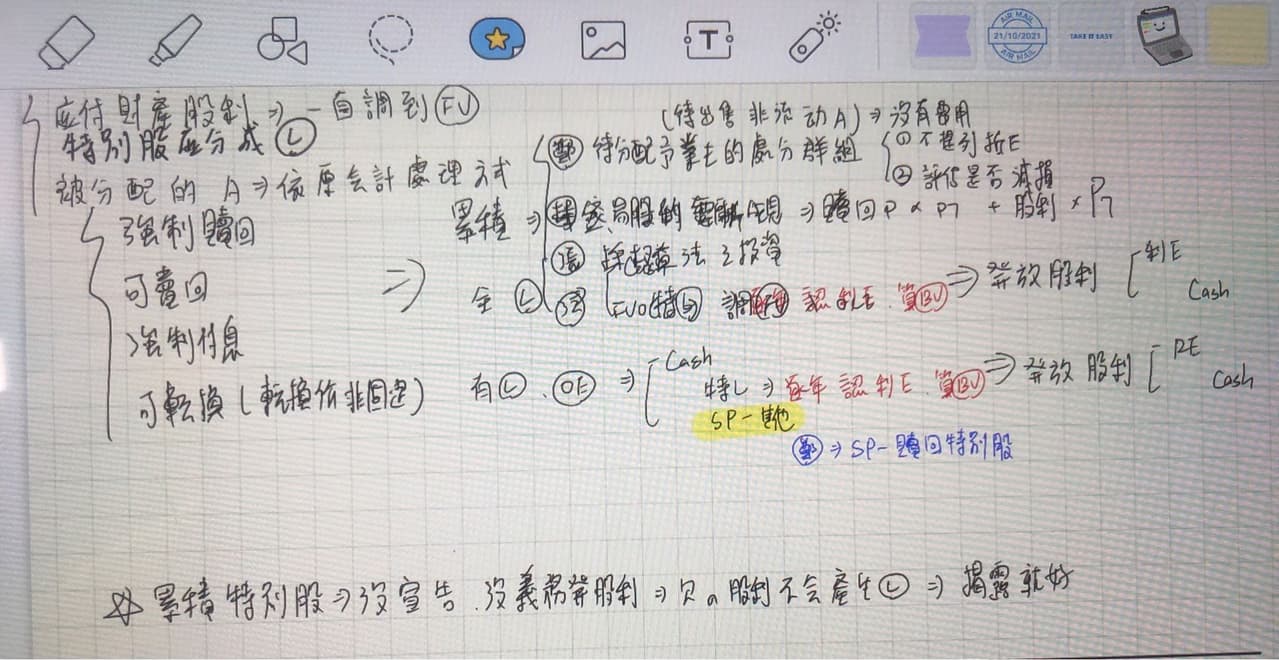 T
AIR MAIL
21/10/2021
AIR MAIL
TAKE IT EASY
应付財產股利 ⇒ 一自調到 FV
(待出售非流动A) ⇒ 沒有費用
特別股应分成 L
鄭 待分配予業主的處分群組
① 不提列折E
② 評估是否減損
被分配的 A ⇒ 依原会計處理方式
強制贖回
累積 ⇒ ⇒ 贖回P × P7 + 股利 × P7
可賣回
法之投資
⇒ 全 L 認利E. 算BV ⇒ 發放股利
利E
Cash
強制付息
可轉換(轉換价非固定)
有 L. OE ⇒
Cash
特L ⇒ 逐年認利E. 算BV ⇒ 發放股利
RE
Cash
SP-其他
鄭 ⇒ SP-贖回特別股
☆ 累積特別股 ⇒ 沒宣告.沒義務發股利 ⇒ 欠a股利不会產生 L ⇒ 揭露就好